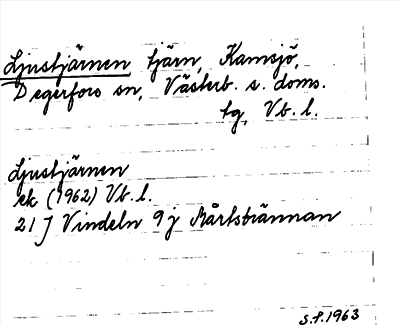 Ljustjärnen tjärn, Kamsjö,
Degerfors sn, Västerb. s. doms.
tg, Vb. l.
Ljustjärnen
ek (1962) Vb. l.
21 J Vindeln 9 j Mårtsbrännan
S.P. 1963